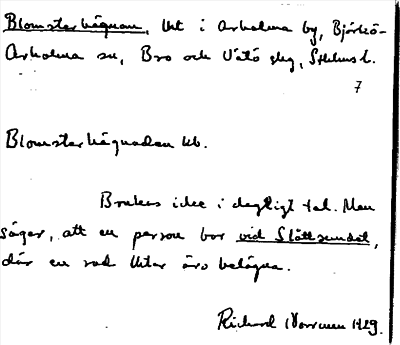 Blomsterhägnan, Utt i Arholma by, Björkö-
Arholma sn, Bro och Vätö slg, Sthlms l.
7
Blomsterhägnaden Ub.
Brukas icke i dagligt tal. Man
säger, att en person bor vid Slåttsundet,
där en rad Uttar äro belägna.
Richard 1929.